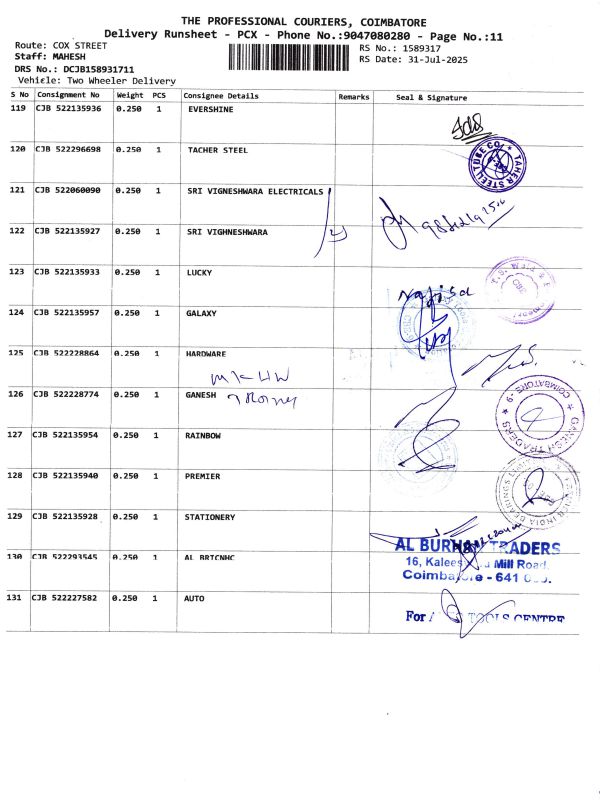 THE PROFESSIONAL COURIERS, COIMBATORE
Delivery Runsheet - PCX - Phone No.:9047080280 - Page No.:11
Route: COX STREET
RS No.: 1589317
Staff: MAHESH
RS Date: 31-Jul-2025
DRS No.: DCJB158931711
Vehicle: Two Wheeler Delivery
S No Consignment No Weight PCS Consignee Details Remarks Seal & Signature
119 CJB 522135936 0.250 1 EVERSHINE
120 CJB 522296698 0.250 1 TACHER STEEL
TAHER STEEL TUBE CO.
121 CJB 522060090 0.250 1 SRI VIGNESHWARA ELECTRICALS
122 CJB 522135927 0.250 1 SRI VIGHNESHWARA
123 CJB 522135933 0.250 1 LUCKY
Nafisa
124 CJB 522135957 0.250 1 GALAXY
125 CJB 522228864 0.250 1 HARDWARE
MK HW
126 CJB 522228774 0.250 1 GANESH
GANESH TRADERS COIMBATORE - 9
127 CJB 522135954 0.250 1 RAINBOW
128 CJB 522135940 0.250 1 PREMIER
INDIA BEARINGS
129 CJB 522135928 0.250 1 STATIONERY
AL BURHAN TRADERS
130 CJB 522293545 0.250 1
16, Mill Road,
Coimbatore - 641
131 CJB 522227582 0.250 1 AUTO
For TOOLS CENTRE